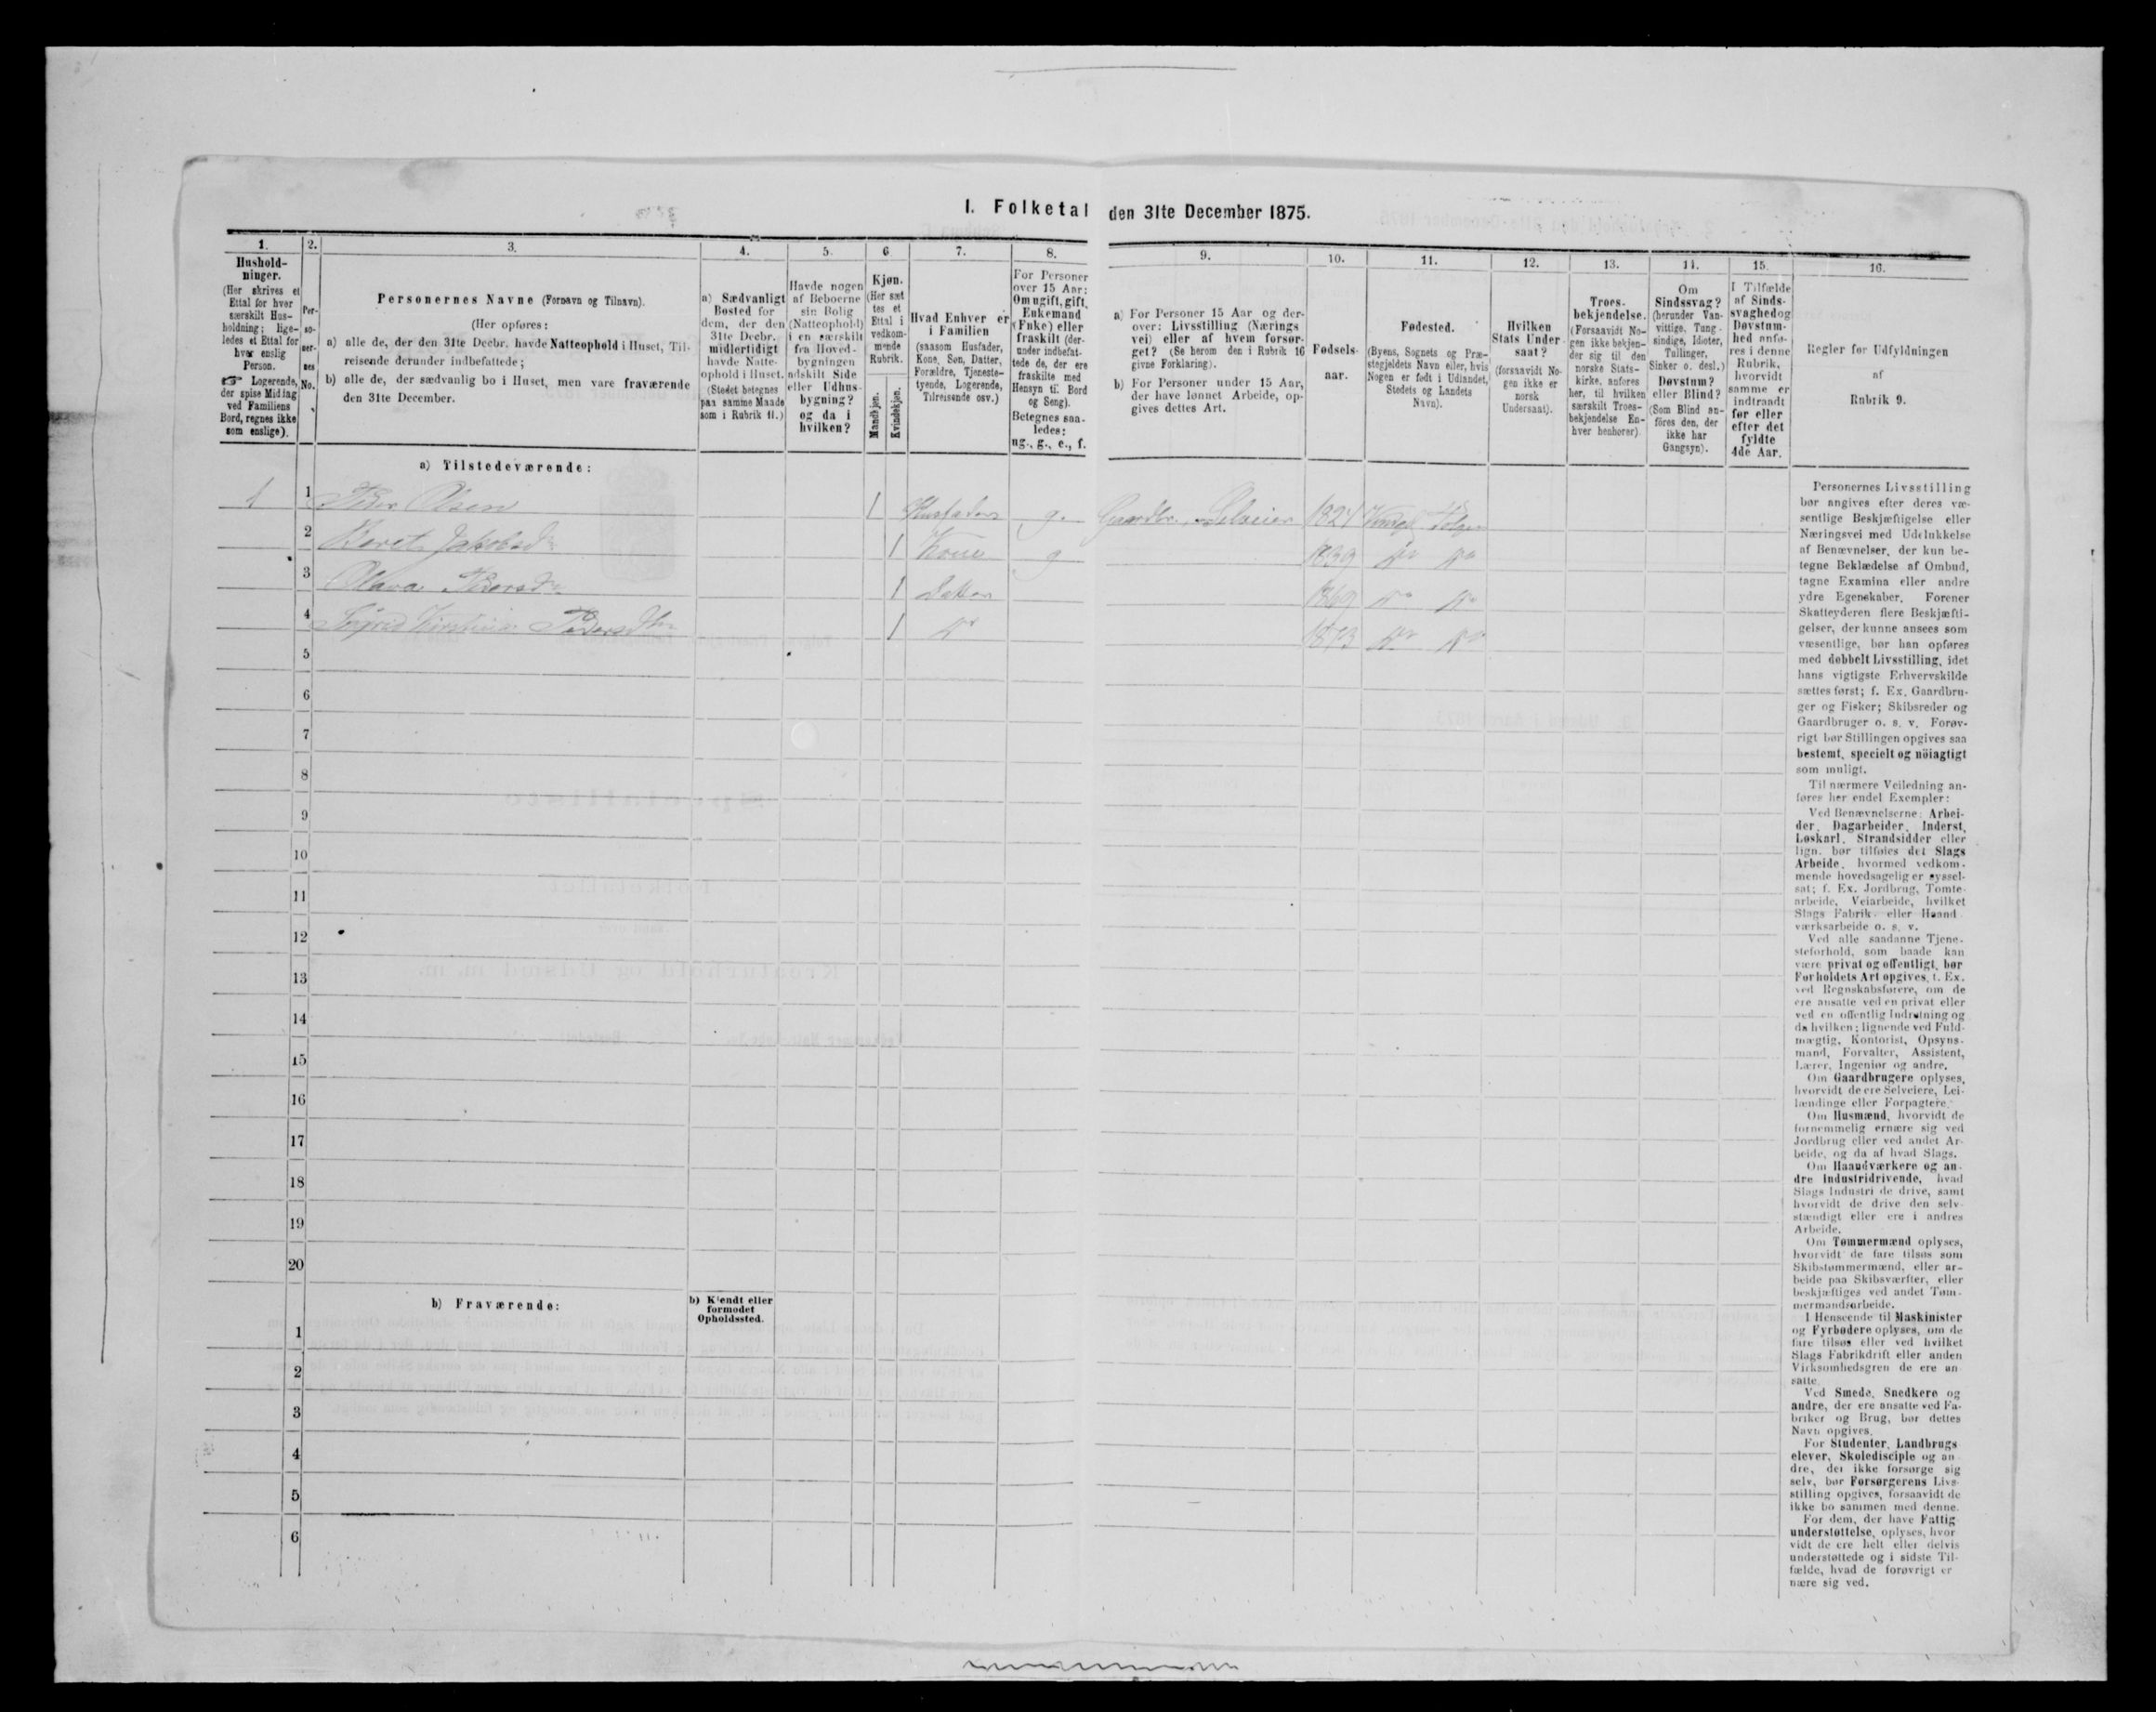 I. Folketal den 31te December 1875.
1.
2.
3.
4.
5.
6
7.
8.
9.
10.
11.
12.
13.
14.
15.
16.
Hushold-
ninger.
(Her skrives et
Ettal for hver
særskilt Hus-
holdning; lige-
ledes et Ettal for
hver enslig
Person.
☞ Logerende,
der spise Middag
ved Familiens
Bord, regnes ikke
som enslige).
Per-
so-
ner-
nes
No.
Personernes Navne (Fornavn og Tilnavn).
(Her opføres:
a) alle de, der den 31te Decbr. havde Natteophold i Huset, Til-
reisende derunder indbefattede;
b) alle de, der sædvanlig bo i Huset, men vare fraværende
den 31te December.
a) Sædvanligt
Bosted for
dem, der den
31te Decbr.
midlertidigt
havde Natte-
ophold i Huset.
(Stedet betegnes
paa samme Maade
som i Rubrik 11.)
Havde nogen
af Beboerne
sin Bolig
(Natteophold)
i en særskilt
fra Hoved-
bygningen
adskilt Side
eller Udhus-
bygning?
og da i
hvilken?
Kjøn.
(Her sæt
tes et
Ettal i
vedkom-
mende
Rubrik.
Mandkjøn.
Kvindekjøn.
Hvad Enhver er
i Familien
(saasom Husfader,
Kone, Søn, Datter,
Forældre, Tjeneste-
tyende, Logerende,
Tilreisende osv.)
For Personer
over 15 Aar:
Om ugift, gift,
Enkemand
(Enke) eller
fraskilt (der-
under indbefat-
tede de, der ere
fraskilte med
Hensyn til Bord
og Seng).
Betegnes saa-
ledes:
ug., g., e., f.
a) For Personer 15 Aar og der-
over: Livsstilling (Nærings
vei) eller af hvem forsør-
get? (Se herom den i Rubrik 16
givne Forklaring).
b) For Personer under 15 Aar,
der have lønnet Arbeide, op-
gives dettes Art.
Fødsels-
aar.
Fødested.
(Byens, Sognets og Præ-
stegjeldets Navn eller, hvis
Nogen er født i Udlandet,
Stedets og Landets
Navn).
Hvilken
Stats Under
saat?
(forsaavidt No-
gen ikke er
norsk
Undersaat).
Troes-
bekjendelse.
(Forsaavidt No-
gen ikke bekjen-
der sig til den
norske Stats-
kirke, anføres
her, til hvilken
særskilt Troes-
bekjendelse En-
hver henhører)
Om
Sindssvag?
(herunder Van-
vittige, Tung-
sindige, Idioter,
Tullinger,
Sinker o. desl.)
Døvstum?
eller Blind?
(Som Blind an-
føres den, der
ikke har
Gangsyn).
I Tilfælde
af Sinds-
svaghed og
Døvstum-
hed anfø-
res i denne
Rubrik,
hvorvidt
samme er
indtraadt
før eller
efter det
fyldte
4de Aar.
Regler for Udfyldningen
af
Rubrik 9.
a) Tilstedeværende:
1 1 Peder Olsen 1 Husfader g. Gaardbr. Selveier 1824
2 Beret Jakobsd 1 Kone g 1839 Do Do
3 Olava Pedersd 1 Datter 1869 Do Do
4 Pedersdtr 1 Do 1873 Do Do
5
6
7
8
9
10
11
12
13
14
15
16
17
18
19
20
b) Fraværende:
b) Kjendt eller
formodet
Opholdssted.
1
2
3
4
5
6
Personernes Livsstilling
bør angives efter deres væ-
sentlige Beskjæftigelse eller
Næringsvei med Udelukkelse
af Benævnelser, der kun be-
tegne Beklædelse af Ombud,
tagne Examina eller andre
ydre Egenskaber. Forener
Skatteyderen flere Beskjæfti-
gelser, der kunne ansees som
væsentlige, bør han opføres
med dobbelt Livsstilling, idet
hans vigtigste Erhvervskilde
sættes først; f. Ex. Gaardbru-
ger og Fisker; Skibsreder og
Gaardbruger o. s. v. Forøv-
rigt bør Stillingen opgives saa
bestemt, specielt og nöiagtigt
som muligt.
Til nærmere Veiledning an-
føres her endel Exempler:
Ved Benævnelserne: Arbei-
der, Dagarbeider, Inderst,
Løskarl, Strandsidder eller
lign. bør tilføies det Slags
Arbeide, hvormed vedkom-
mende hovedsagelig er syssel-
sat; f. Ex. Jordbrug, Tomte-
arbeide, Veiarbeide, hvilket
Slags Fabrik- eller Haand-
værksarbeide o. s. v.
Ved alle saadanne Tjene-
steforhold, som baade kan
være privat og offentligt, bør
Forholdets Art opgives, f. Ex.
ved Regnskabsførere, om de
ere ansatte ved en privat eller
ved en offentlig Indretning og
da hvilken; lignende ved Fuld-
mægtig, Kontorist, Opsyns-
mand, Forvalter, Assistent,
Lærer, Ingeniør og andre.
Om Gaardbrugere oplyses,
hvorvidt de ere Selveiere, Lei-
lændinge eller Forpagtere.
Om Husmænd, hvorvidt de
fornemmelig ernære sig ved
Jordbrug eller ved andet Ar-
beide, og da af hvad Slags.
Om Haandværkere og an-
dre Industridrivende, hvad
Slags Industri de drive, samt
hvorvidt de drive den selv-
stændigt eller ere i andres
Arbeide.
Om Tømmermænd oplyses,
hvorvidt de fare tilsøs som
Skibstømmermænd, eller ar-
beide paa Skibsværfter, eller
beskjæftiges ved andet Tøm-
mermandsarbeide.
I Henseende til Maskinister
og Fyrbødere oplyses, om de
fare tilsøs eller ved hvilket
Slags Fabrikdrift eller anden
Virksomhedsgren de ere an
satte.
Ved Smede, Snedkere og
andre, der ere ansatte ved Fa-
briker og Brug, bør dettes
Navn opgives.
For Studenter, Landbrugs
elever, Skoledisciple og an
dre, der ikke forsørge sig
selv, bør Forsørgerens Livs-
stilling opgives, forsaavidt de
ikke bo sammen med denne.
For dem, der have Fattig
understøttelse, oplyses, hvor
vidt de ere helt eller delvis
understøttede og i sidste Til-
fælde, hvad de forøvrigt er
nære sig ved.